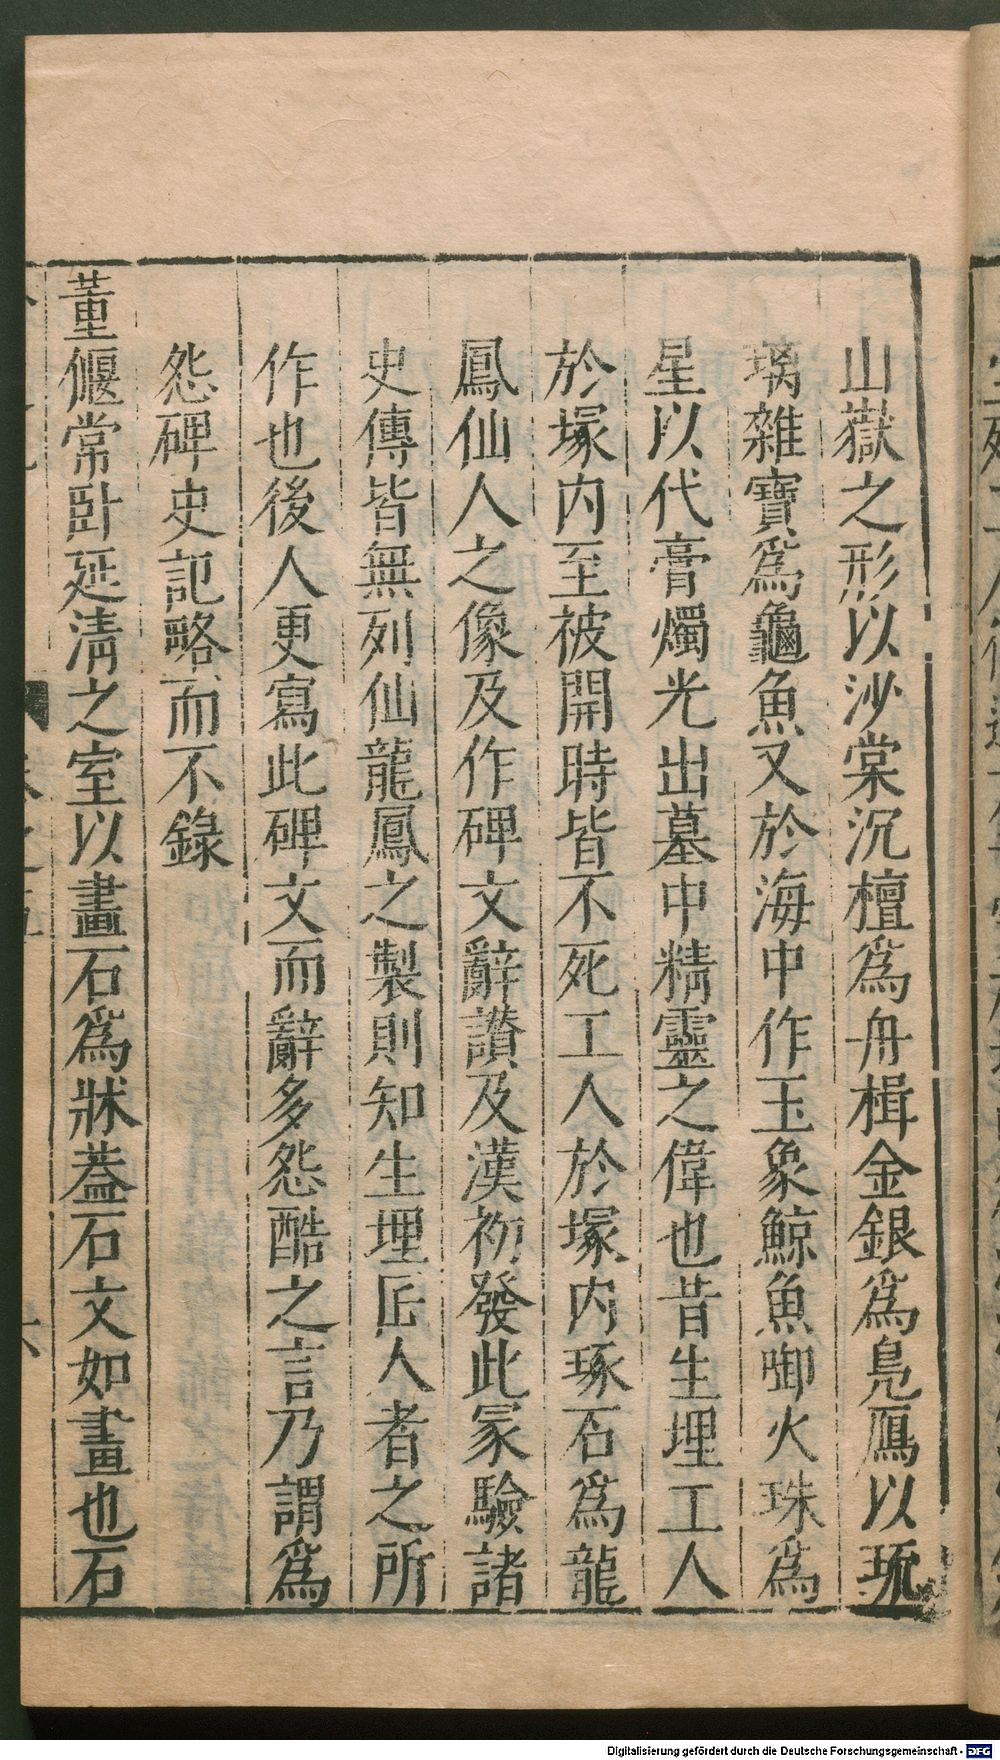 山嶽之形以沙棠沉檀爲舟楫金銀爲鳧鴈以琉
璃雜寶爲龜魚又於海中作玉象鯨魚啣火珠爲
星以代膏燭光出墓中精靈之偉也昔生埋工人
於塚内至被開時皆不死工人於塚内琢石爲龍
鳳仙人之像及作碑文辭讚及漢初發此冢驗諸
史傳皆無列仙龍鳳之製則知生埋匠人者之所
作也後人更寫此碑文而辭多怨酷之言乃謂爲
怨碑史記略而不錄
董偃常臥延清之室以畫石爲牀蓋石文如畫也石
Digitalisierung gefördert durch die Deutsche Forschungsgemeinschaft - DFG